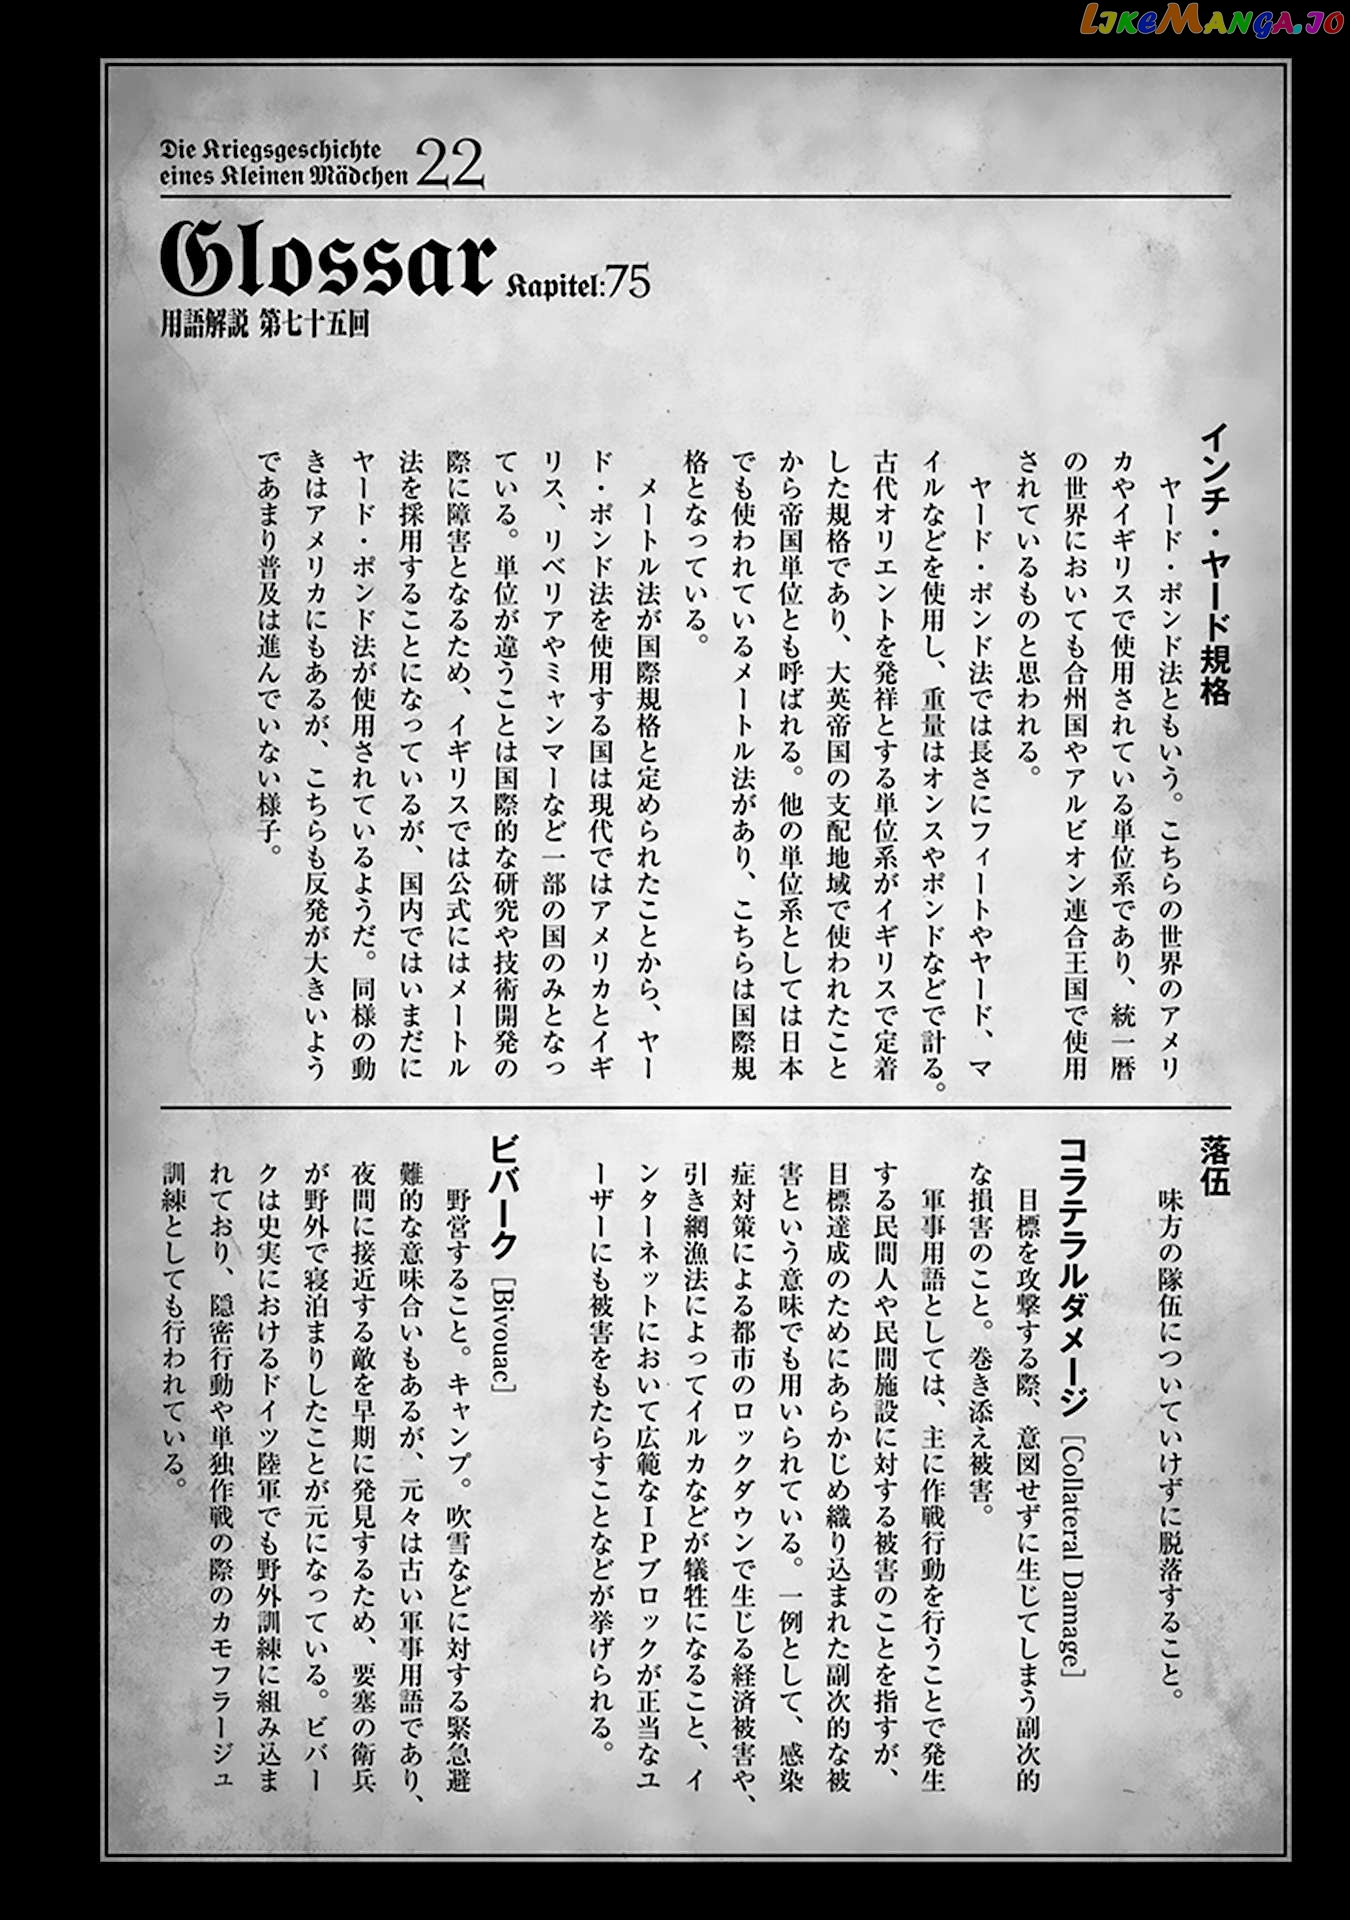 LIKEMANGA.IO
Die Kriegsgeschichte
eines Kleinen Mädchen 22
Glossar Kapitel:75
用語解説 第七十五回
インチ・ヤード規格
ヤード・ポンド法ともいう。こちらの世界のアメリ
カやイギリスで使用されている単位系であり、統一暦
の世界においても合州国やアルビオン連合王国で使用
されているものと思われる。
ヤード・ポンド法では長さにフィートやヤード、マ
イルなどを使用し、重量はオンスやポンドなどで計る。
古代オリエントを発祥とする単位系がイギリスで定着
した規格であり、大英帝国の支配地域で使われたこと
から帝国単位とも呼ばれる。他の単位系としては日本
でも使われているメートル法があり、こちらは国際規
格となっている。
メートル法が国際規格と定められたことから、ヤー
ド・ポンド法を使用する国は現代ではアメリカとイギ
リス、リベリアやミャンマーなど一部の国のみとなっ
ている。単位が違うことは国際的な研究や技術開発の
際に障害となるため、イギリスでは公式にはメートル
法を採用することになっているが、国内ではいまだに
ヤード・ポンド法が使用されているようだ。同様の動
きはアメリカにもあるが、こちらも反発が大きいよう
であまり普及は進んでいない様子。
落伍
味方の隊伍についていけずに脱落すること。
コラテラルダメージ［Collateral Damage］
目標を攻撃する際、意図せずに生じてしまう副次的
な損害のこと。巻き添え被害。
軍事用語としては、主に作戦行動を行うことで発生
する民間人や民間施設に対する被害のことを指すが、
目標達成のためにあらかじめ織り込まれた副次的な被
害という意味でも用いられている。一例として、感染
症対策による都市のロックダウンで生じる経済被害や、
引き網漁法によってイルカなどが犠牲になること、イ
ンターネットにおいて広範なIPブロックが正当なユ
ーザーにも被害をもたらすことなどが挙げられる。
ビバーク［Bivouac］
野営すること。キャンプ。吹雪などに対する緊急避
難的な意味合いもあるが、元々は古い軍事用語であり、
夜間に接近する敵を早期に発見するため、要塞の衛兵
が野外で寝泊まりしたことが元になっている。ビバー
クは史実におけるドイツ陸軍でも野外訓練に組み込ま
れており、隠密行動や単独作戦の際のカモフラージュ
訓練としても行われている。